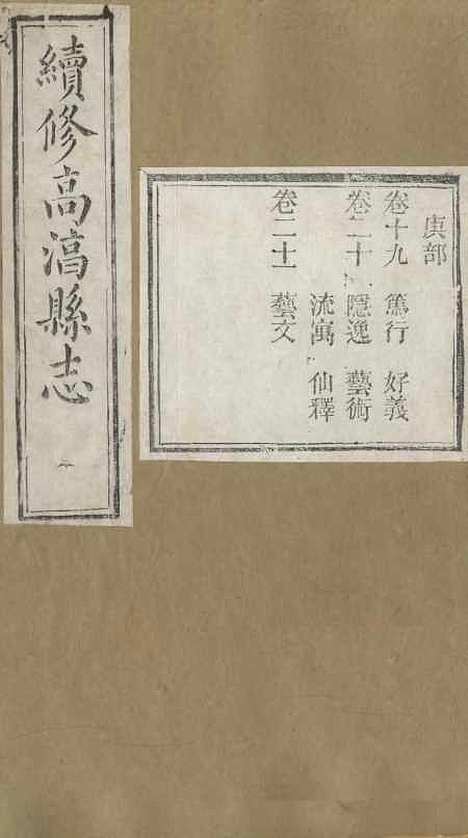 續修高淳縣志
庚部
卷十九 篤行 好義
卷二十 隱逸 藝術
流寓 仙釋
卷二十一 藝文